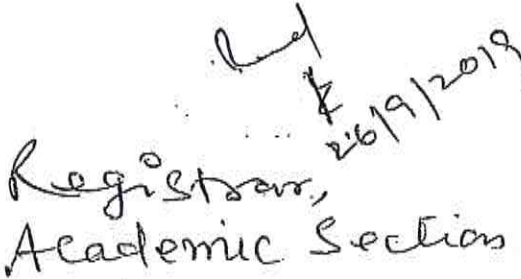 26/9/2019
Registrar,
Academic Section